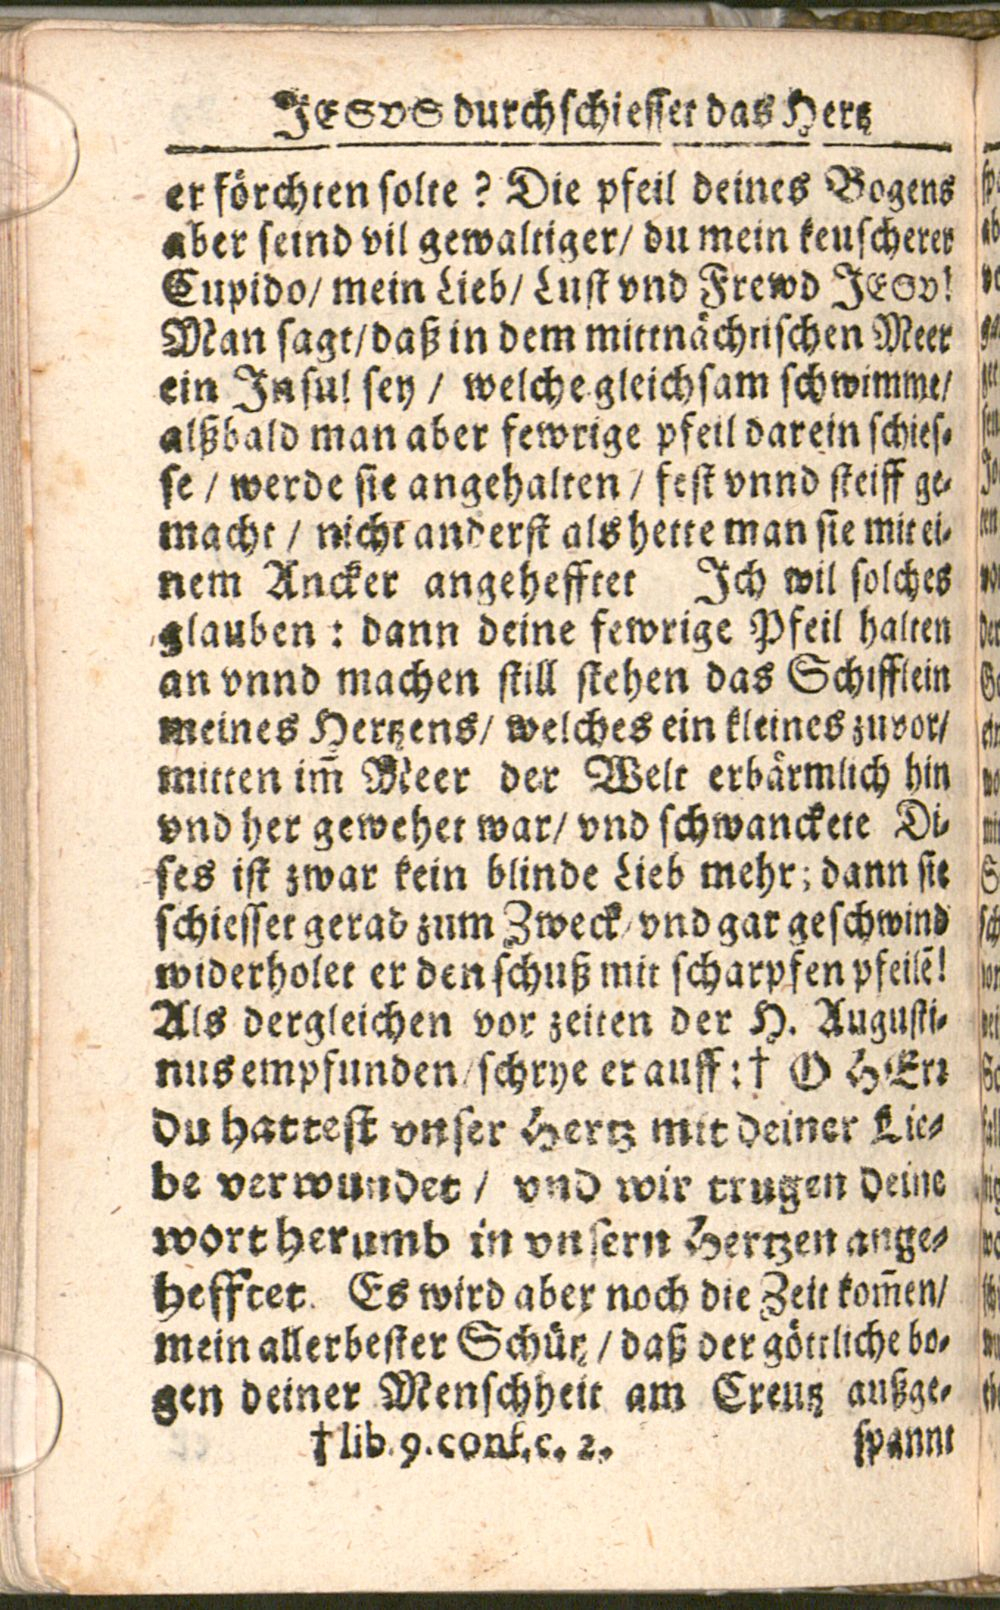 JESVS durchschiesset das Hertz
er förchten solte ? Die pfeil deines Bogens
aber seind vil gewaltiger/ du mein keuscherer
Cupido/ mein Lieb/ Lust vnd Frewd JESV!
Man sagt/ daß in dem mittnächtischen Meer
ein Insul sey / welche gleichsam schwimme/
alßbald man aber fewrige pfeil darein schies-
se / werde sie angehalten / fest vnnd steiff ge-
macht / nicht anderst als hette man sie mit ei-
nem Ancker angehefftet Ich wil solches
glauben : dann deine fewrige Pfeil halten
an vnnd machen still stehen das Schifflein
meines Hertzens/ welches ein kleines zuvor/
mitten im̃ Meer der Welt erbärmlich hin
vnd her gewehet war/ vnd schwanckete Di-
ses ist zwar kein blinde Lieb mehr; dann sie
schiesset gerad zum Zweck/ vnd gar geschwind
widerholet er den schuß mit scharpfen pfeilẽ!
Als dergleichen vor zeiten der H. Augusti-
nus empfunden/ schrye er auff : † O HErr
du hattest vnser Hertz mit deiner Lie-
be verwundet / vnd wir trugen deine
wort herumb in vnsern Hertzen ange-
hefftet. Es wird aber noch die Zeit kom̃en/
mein allerbester Schütz / daß der göttliche bo-
gen deiner Menschheit am Creutz außge-
† lib. 9. conf. c. 2. spannt